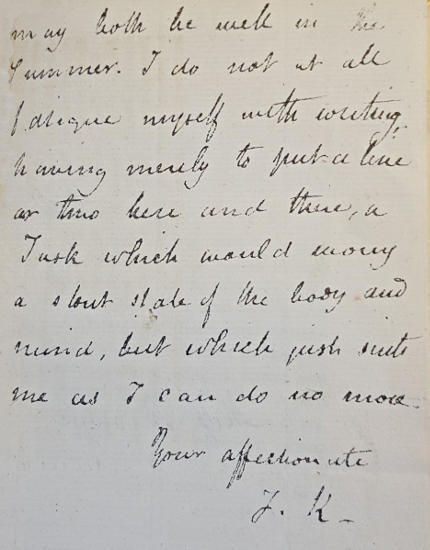 may both be well in the
Summer. I do not at all
fatigue myself with writing,
having merely to put a line
or two here and there, a
Task which would worry
a stout state of the body and
mind, but which just suits
me as I can do no more.
Your affectionate
J. K –